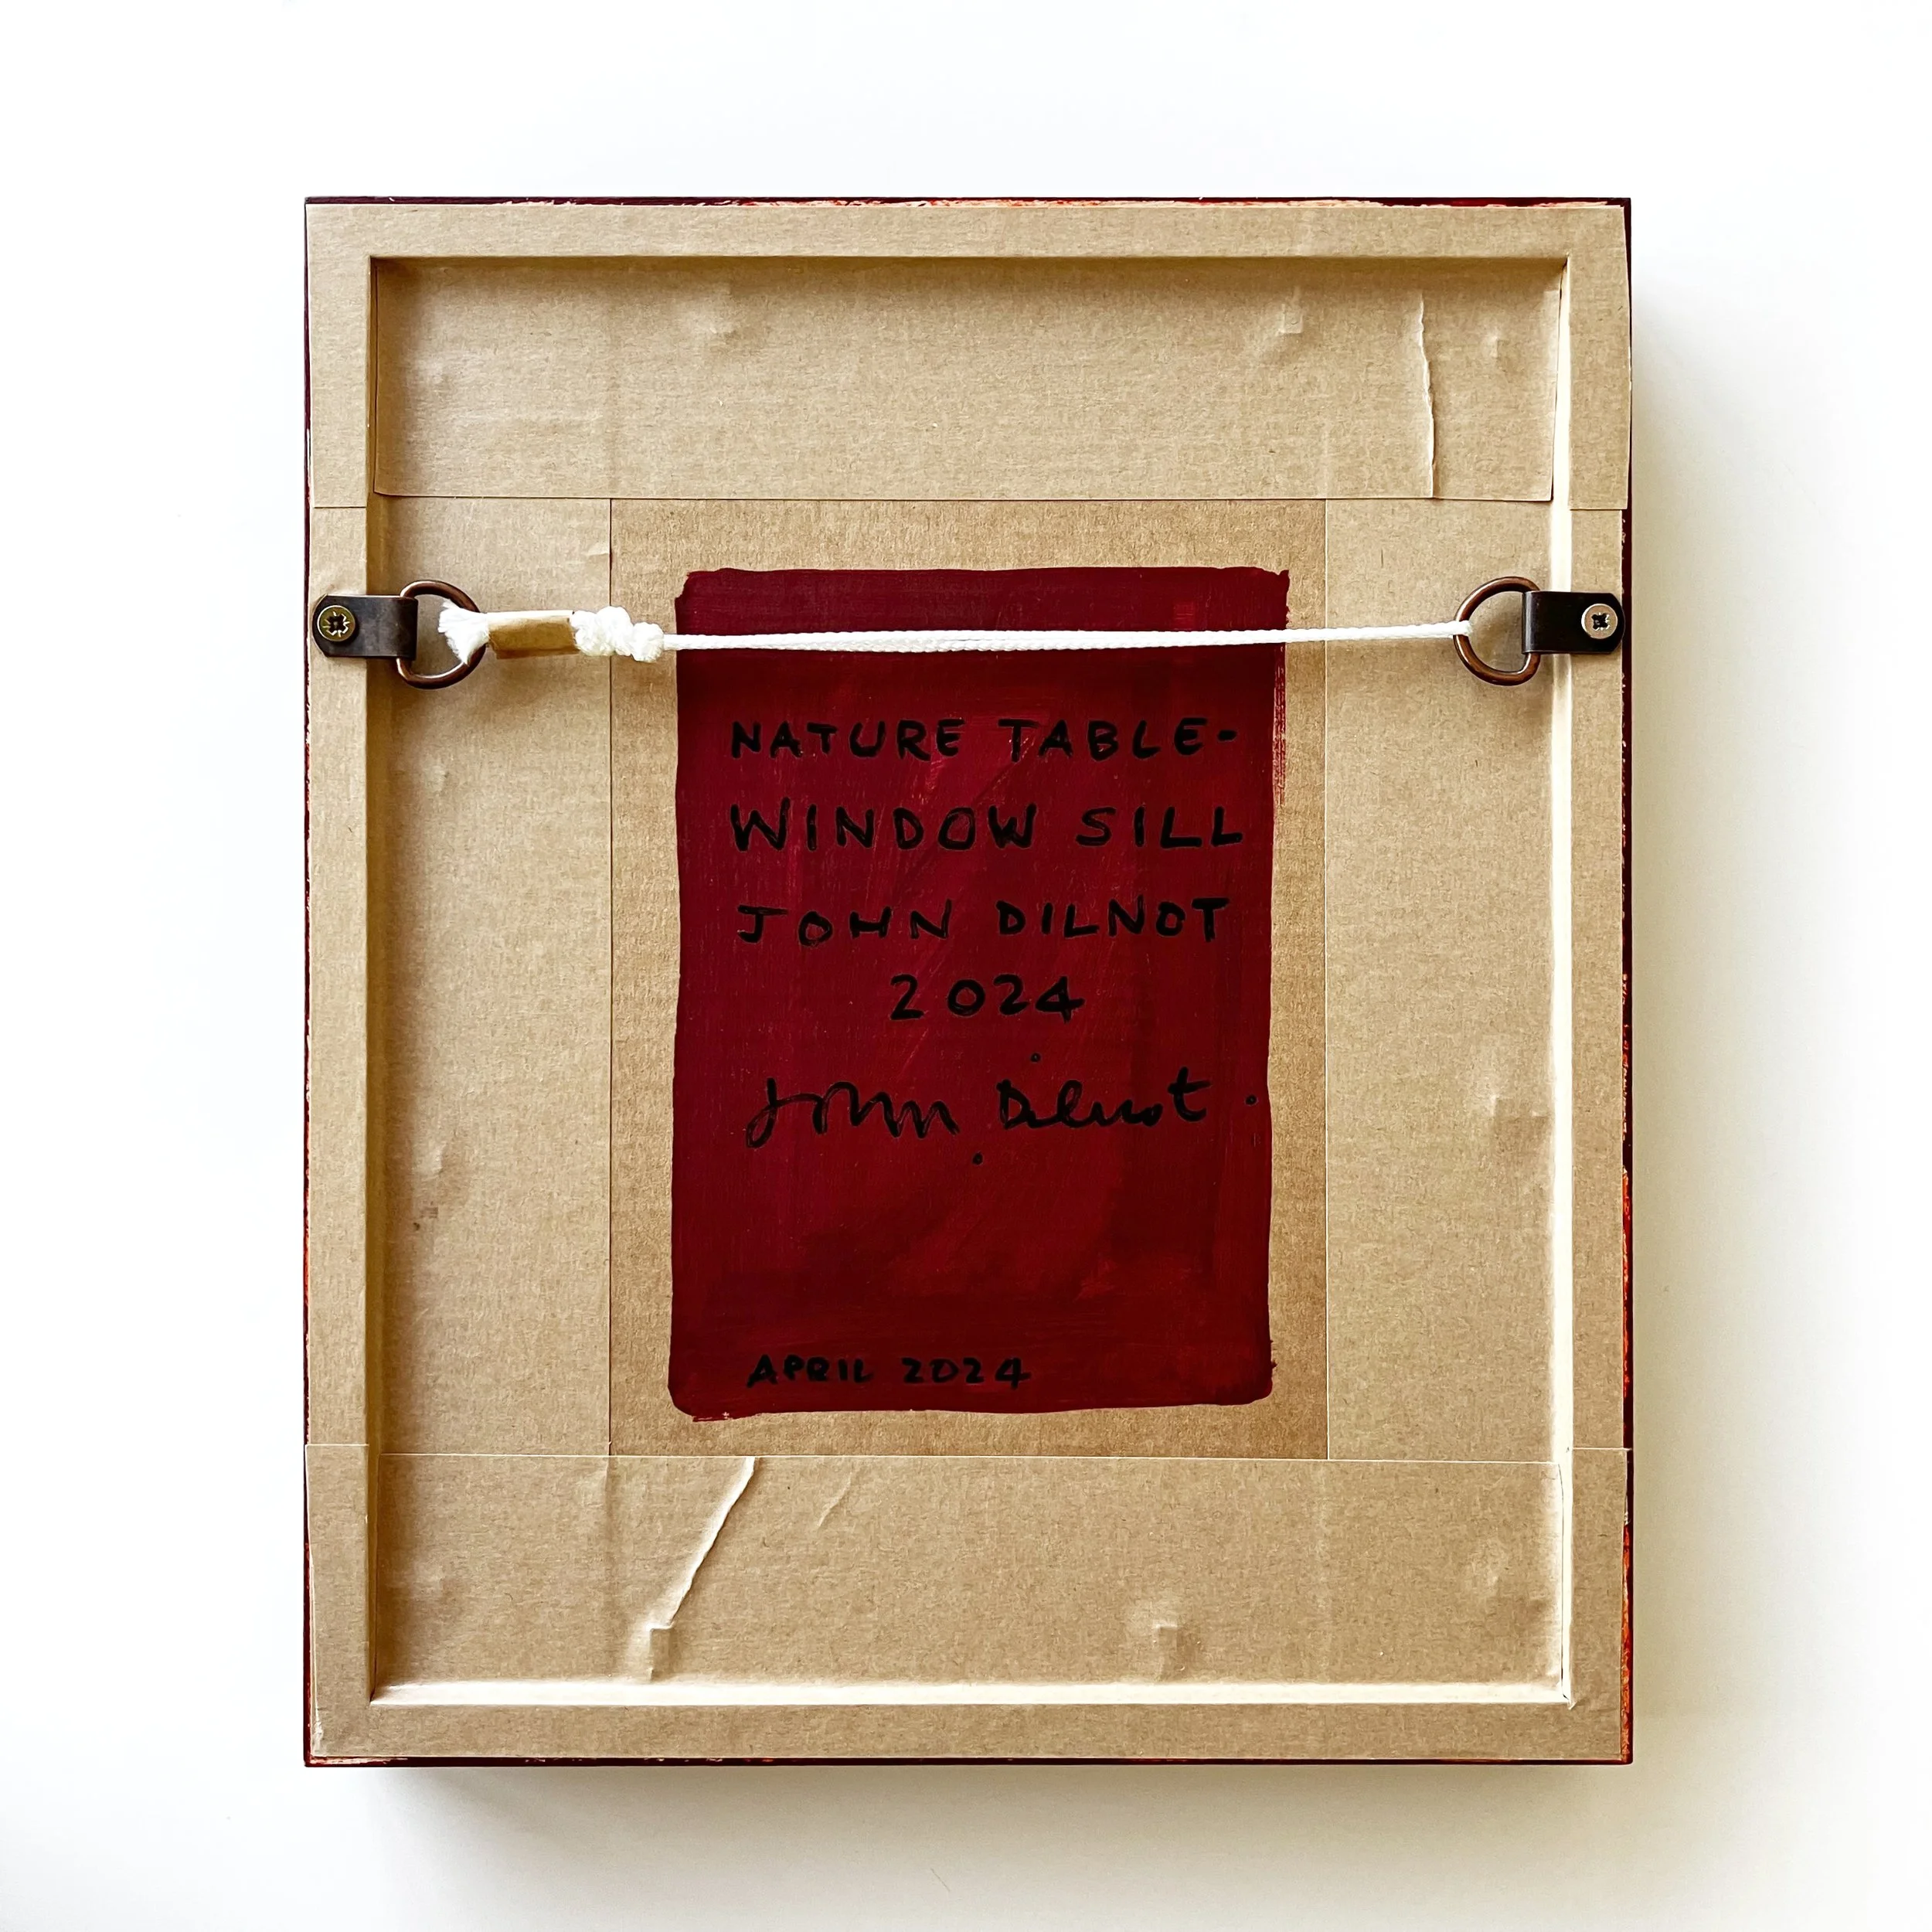 NATURE TABLE-
WINDOW SILL
JOHN DILNOT
2024
John Dilnot.
APRIL 2024